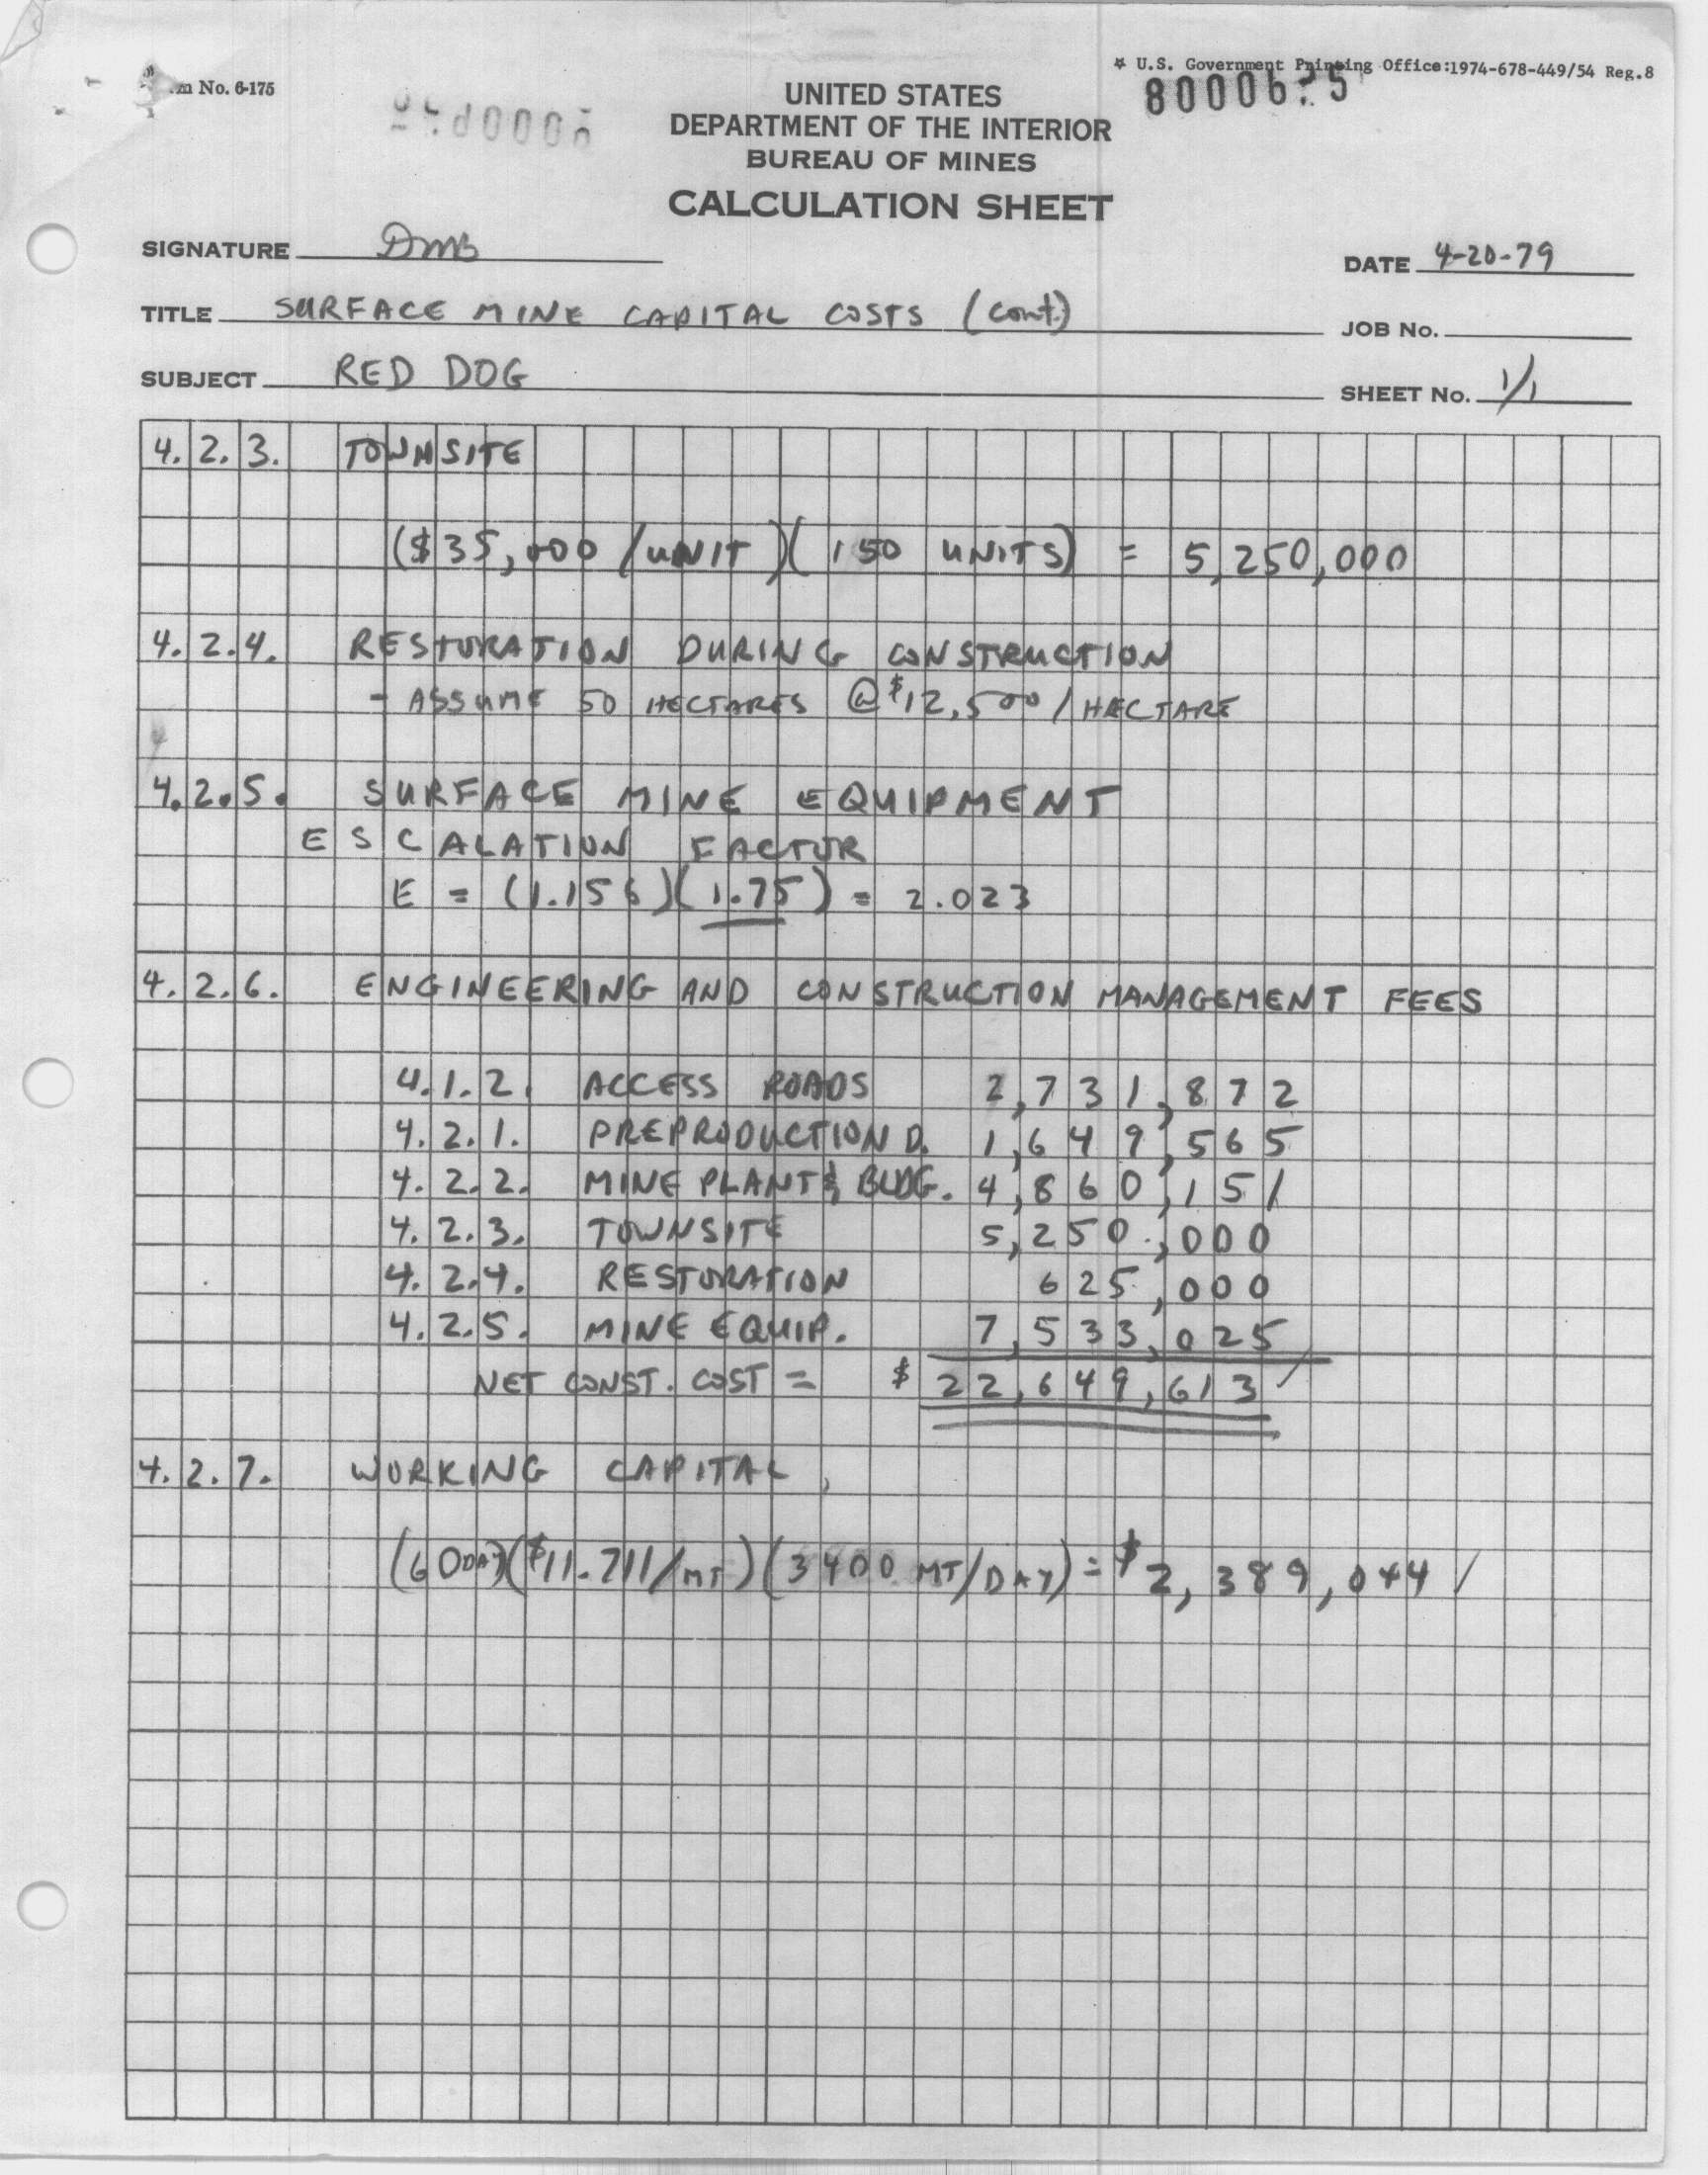 m No. 6-175
* U.S. Government Printing Office:1974-678-449/54 Reg.8
UNITED STATES
DEPARTMENT OF THE INTERIOR
BUREAU OF MINES
CALCULATION SHEET
SIGNATURE DMB
DATE 4-20-79
TITLE SURFACE MINE CAPITAL COSTS (cont.)
JOB No.
SUBJECT RED DOG
SHEET No. 1/1
4.2.3. TOWNSITE
($35,000/UNIT)(150 UNITS) = 5,250,000
4.2.4. RESTORATION DURING CONSTRUCTION
- ASSUME 50 HECTARES @ $12,500/HECTARE
4.2.5. SURFACE MINE EQUIPMENT
ESCALATION FACTOR
E = (1.156)(1.75) = 2.023
4.2.6. ENGINEERING AND CONSTRUCTION MANAGEMENT FEES
4.1.2. ACCESS ROADS 2,731,872
4.2.1. PREPRODUCTION D. 1,649,565
4.2.2. MINE PLANT & BLDG. 4,860,151
4.2.3. TOWNSITE 5,250,000
4.2.4. RESTORATION 625,000
4.2.5. MINE EQUIP. 7,533,025
NET CONST. COST = $22,649,613
4.2.7. WORKING CAPITAL
(60 DAY)($11.711/MT)(3400 MT/DAY) = $2,389,044